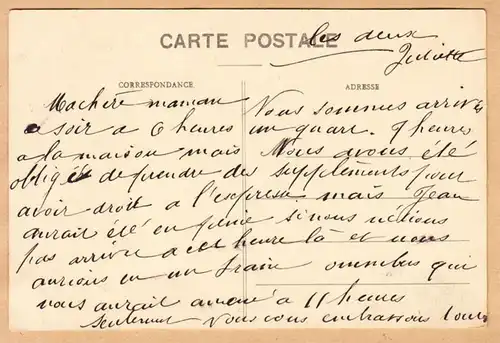 les deux
CARTE POSTALE
Juliette
CORRESPONDANCE
ADRESSE
Ma chère maman Nous sommes arrivés
soir a 6 heures un quart. 9 heures
a la maison mais Nous avons été
obligée de prendre des suppléments pour
avoir droit a l'express. mais Jean
aurait été en peine si nous n'étions
pas arrivé a cet heure là et nous
aurions eu un train omnibus qui
nous aurait amené a 11 heures
seulement Nous vous embrassons tous